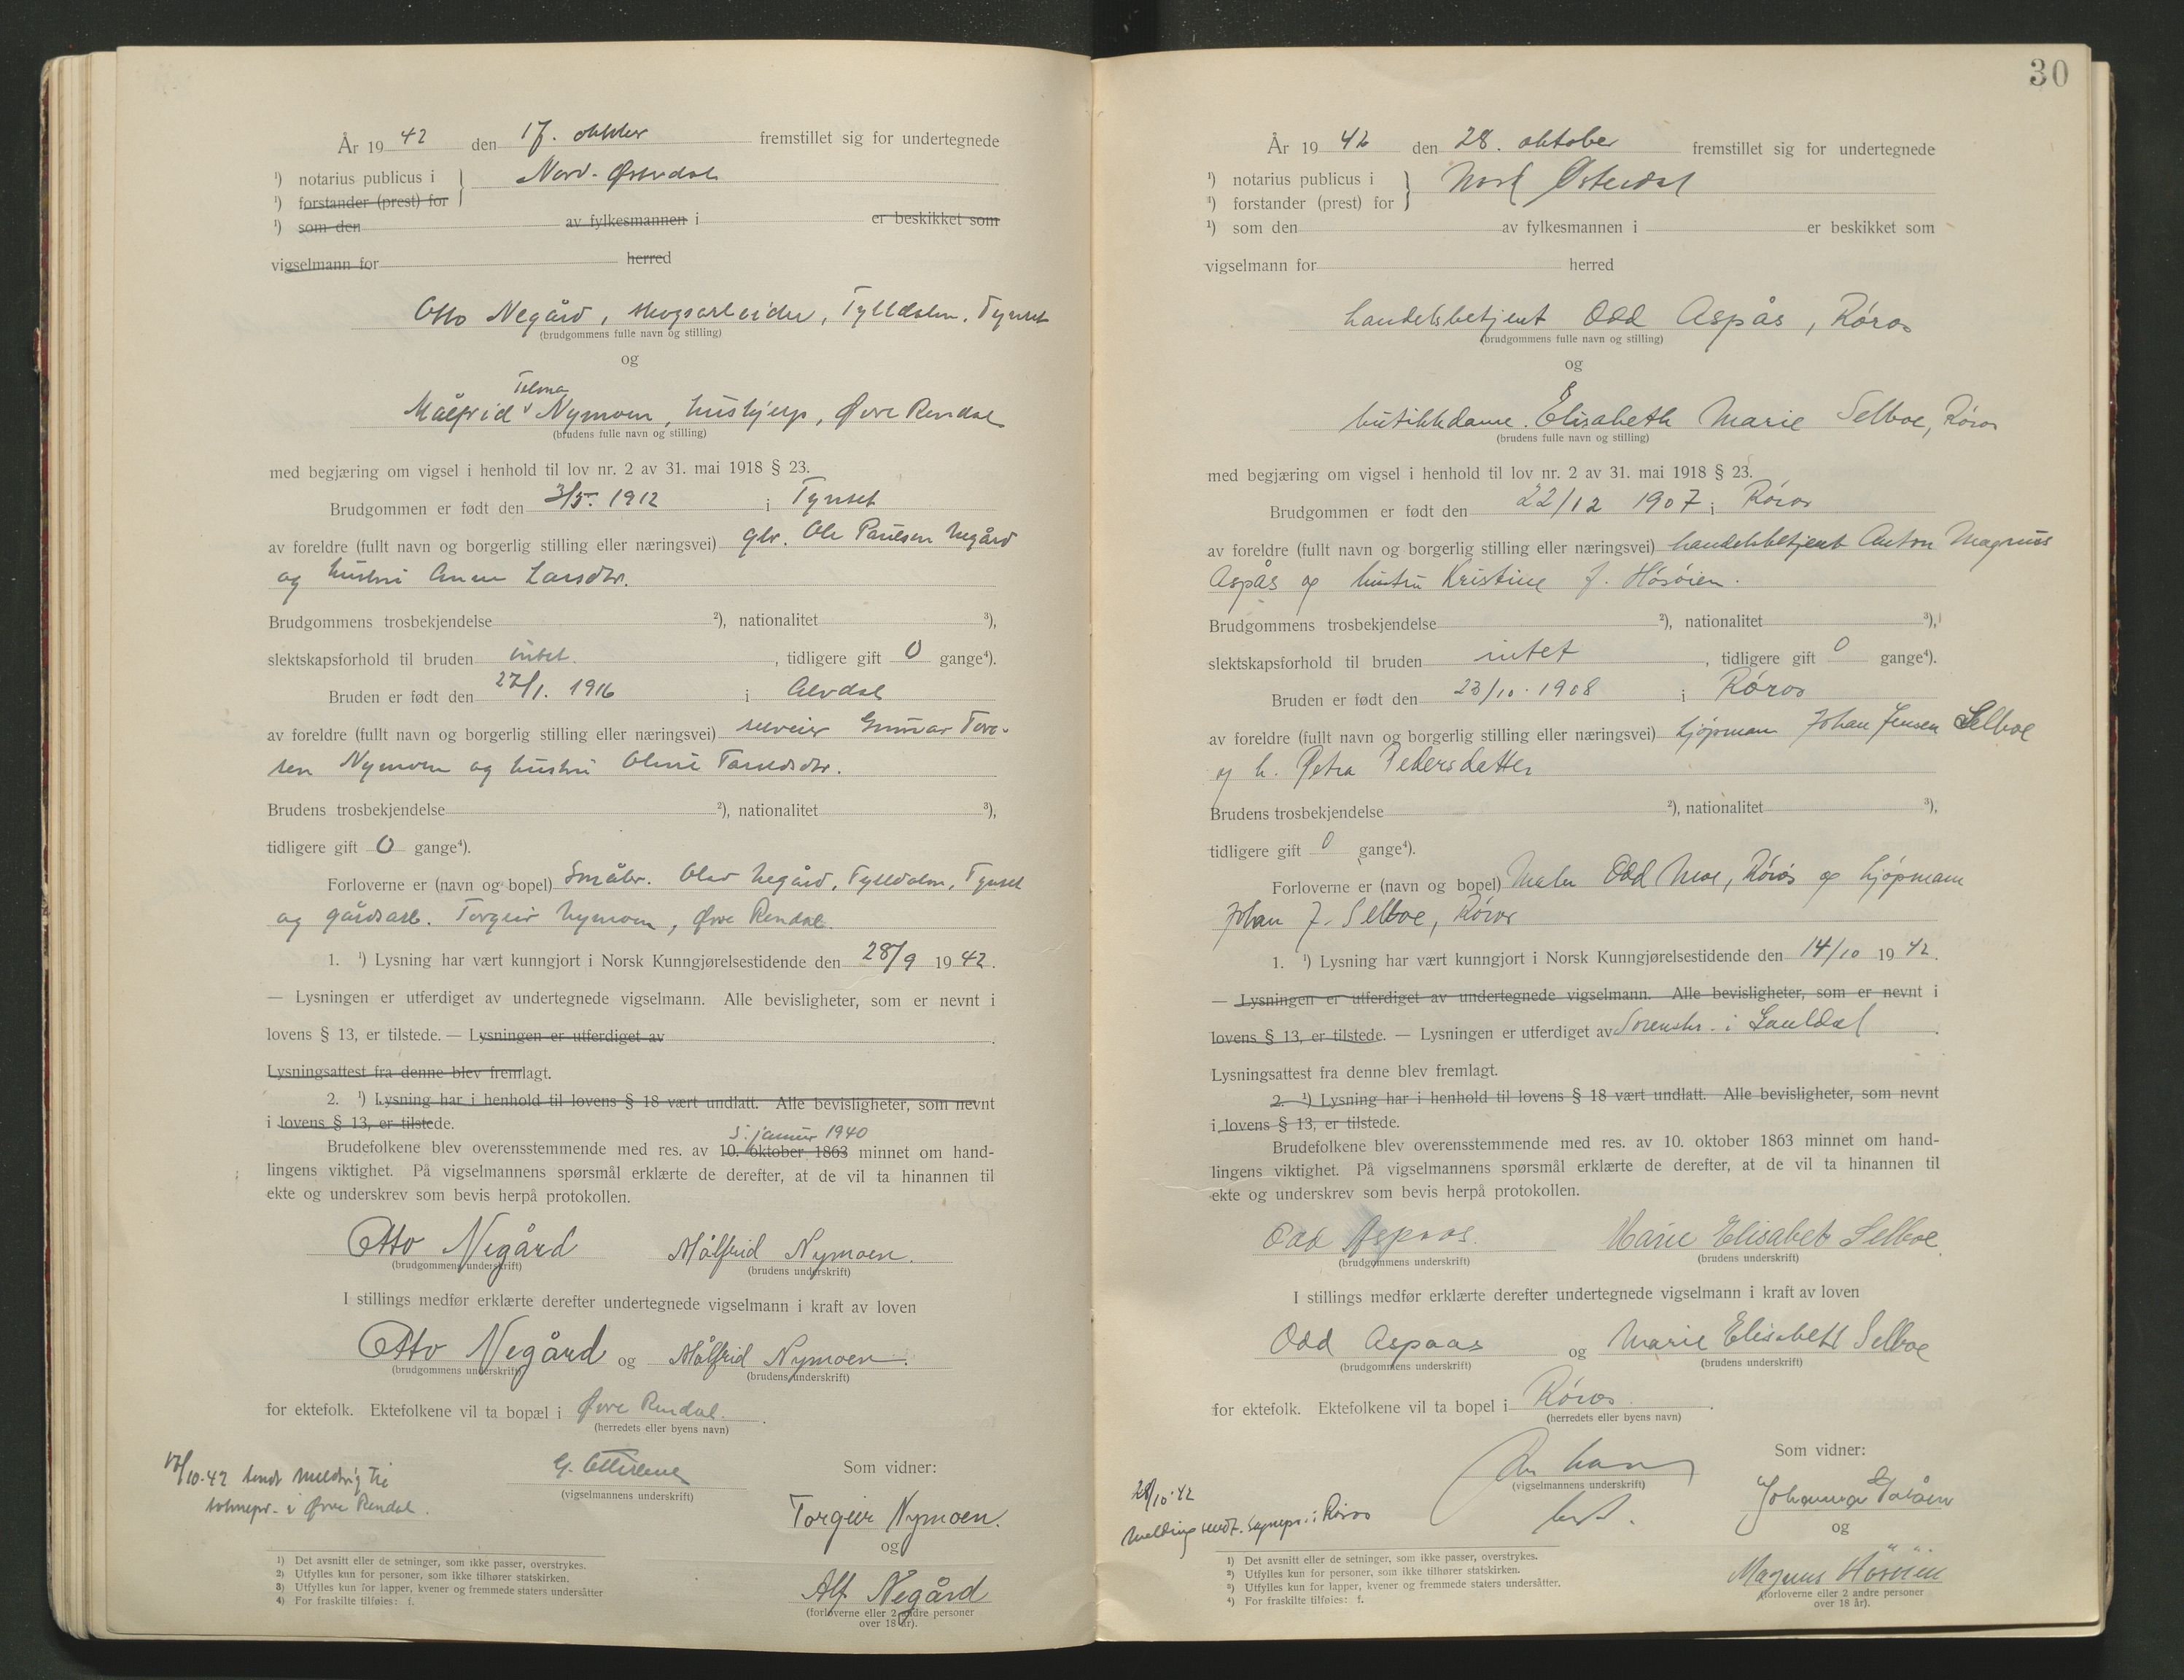 År 19 42 den 17. oktober fremstillet sig for undertegnede
¹) notarius publicus i
Nord-Østerdal
¹) forstander (prest) for
¹) som den av fylkesmannen i er beskikket som
vigselmann for herred
Otto Negård, skogsarbeider, Tylldalen, Tynset
(brudgommens fulle navn og stilling)
og
Telma
Målfrid Nymoen, hushjelp, Øvre Rendal
(brudens fulle navn og stilling)
med begjæring om vigsel i henhold til lov nr. 2 av 31. mai 1918 § 23.
Brudgommen er født den 3/5. 1912 i Tynset
av foreldre (fullt navn og borgerlig stilling eller næringsvei) gbr. Ole Paulsen Negård
og hustru Anne Larsdtr.
Brudgommens trosbekjendelse ²), nationalitet ³),
slektskapsforhold til bruden intet. , tidligere gift 0 gange⁴).
Bruden er født den 27/1. 1916 i Alvdal
av foreldre (fullt navn og borgerlig stilling eller næringsvei) selveier Gunnar Tore-
sen Nymoen og hustru Oline
Brudens trosbekjendelse ²), nationalitet ³),
tidligere gift 0 gange⁴).
Forloverne er (navn og bopel) Småbr. Olav Negård, Tylldalen, Tynset
og gårdsarb. Torgeir Nymoen, Øvre Rendal.
1. ¹) Lysning har vært kunngjort i Norsk Kunngjørelsestidende den 28/9 19 42.
— Lysningen er utferdiget av undertegnede vigselmann. Alle bevisligheter, som er nevnt i
lovens § 13, er tilstede. — Lysningen er utferdiget av .
Lysningsattest fra denne blev fremlagt.
2. ¹) Lysning har i henhold til lovens § 18 vært undlatt. Alle bevisligheter, som nevnt
i lovens § 13, er tilstede.
5. januar 1940
Brudefolkene blev overensstemmende med res. av 10. oktober 1863 minnet om hand-
lingens viktighet. På vigselmannens spørsmål erklærte de derefter, at de vil ta hinannen til
ekte og underskrev som bevis herpå protokollen.
Otto Negård Målfrid Nymoen.
(brudgommens underskrift) (brudens underskrift)
I stillings medfør erklærte derefter undertegnede vigselmann i kraft av loven
Otto Negård og Målfrid Nymoen.
(brudgommens underskrift) (brudens underskrift)
for ektefolk. Ektefolkene vil ta bopæl i Øvre Rendal.
(herredets eller byens navn)
17/10-42 sendt melding til
i Øvre Rendal.
(vigselmannens underskrift)
Som vidner:
Torgeir Nymoen.
og
Alf Negård
(forloverne eller 2 andre personer
over 18 år).
1) Det avsnitt eller de setninger, som ikke passer, overstrykes.
2) Utfylles kun for personer, som ikke tilhører statskirken.
3) Utfylles kun for lapper, kvener og fremmede staters undersåtter
4) For fraskilte tilføies: f.
30
År 19 42 den 28. oktober fremstillet sig for undertegnede
¹) notarius publicus i
Nord Østerdal
¹) forstander (prest) for
¹) som den av fylkesmannen i er beskikket som
vigselmann for herred
handelsbetjent Odd Aspås, Røros
(brudgommens fulle navn og stilling)
og
butikkdame Elisabeth Marie Selboe, Røros
(brudens fulle navn og stilling)
med begjæring om vigsel i henhold til lov nr. 2 av 31. mai 1918 § 23.
Brudgommen er født den 22/12 1907 i Røros
av foreldre (fullt navn og borgerlig stilling eller næringsvei) handelsbetjent Anton Magnus
Aspås og hustru Kristine f. Høsøien.
Brudgommens trosbekjendelse ²), nationalitet ³),
slektskapsforhold til bruden intet , tidligere gift 0 gange⁴).
Bruden er født den 23/10. 1908 i Røros
av foreldre (fullt navn og borgerlig stilling eller næringsvei) kjøpmann Johan Jensen Selboe
og h. Petra Pedersdatter
Brudens trosbekjendelse ²), nationalitet ³),
tidligere gift 0 gange⁴).
Forloverne er (navn og bopel) Maler Odd Moe, Røros og kjøpmann
Johan J. Selboe, Røros
1. ¹) Lysning har vært kunngjort i Norsk Kunngjørelsestidende den 14/10 19 42.
— Lysningen er utferdiget av undertegnede vigselmann. Alle bevisligheter, som er nevnt i
lovens § 13, er tilstede. — Lysningen er utferdiget av Sorenskr. i Gauldal.
Lysningsattest fra denne blev fremlagt.
2. ¹) Lysning har i henhold til lovens § 18 vært undlatt. Alle bevisligheter, som nevnt
i lovens § 13, er tilstede.
Brudefolkene blev overensstemmende med res. av 10. oktober 1863 minnet om hand-
lingens viktighet. På vigselmannens spørsmål erklærte de derefter, at de vil ta hinannen til
ekte og underskrev som bevis herpå protokollen.
Odd Aspaas. Marie Elisabet Selboe.
(brudgommens underskrift) (brudens underskrift)
I stillings medfør erklærte derefter undertegnede vigselmann i kraft av loven
Odd Aspaas og Marie Elisabeth Selboe
(brudgommens underskrift) (brudens underskrift)
for ektefolk. Ektefolkene vil ta bopel i Røros.
(herredets eller byens navn)
28/10-42
Melding sendt sognepr. i Røros
(vigselmannens underskrift)
Som vidner:
Johanna
og
Magnus Høsöien
(forloverne eller 2 andre personer
over 18 år).
1) Det avsnitt eller de setninger, som ikke passer, overstrykes.
2) Utfylles kun for personer, som ikke tilhører statskirken.
3) Utfylles kun for lapper, kvener og fremmede staters undersåtter.
4) For fraskilte tilføies: f.